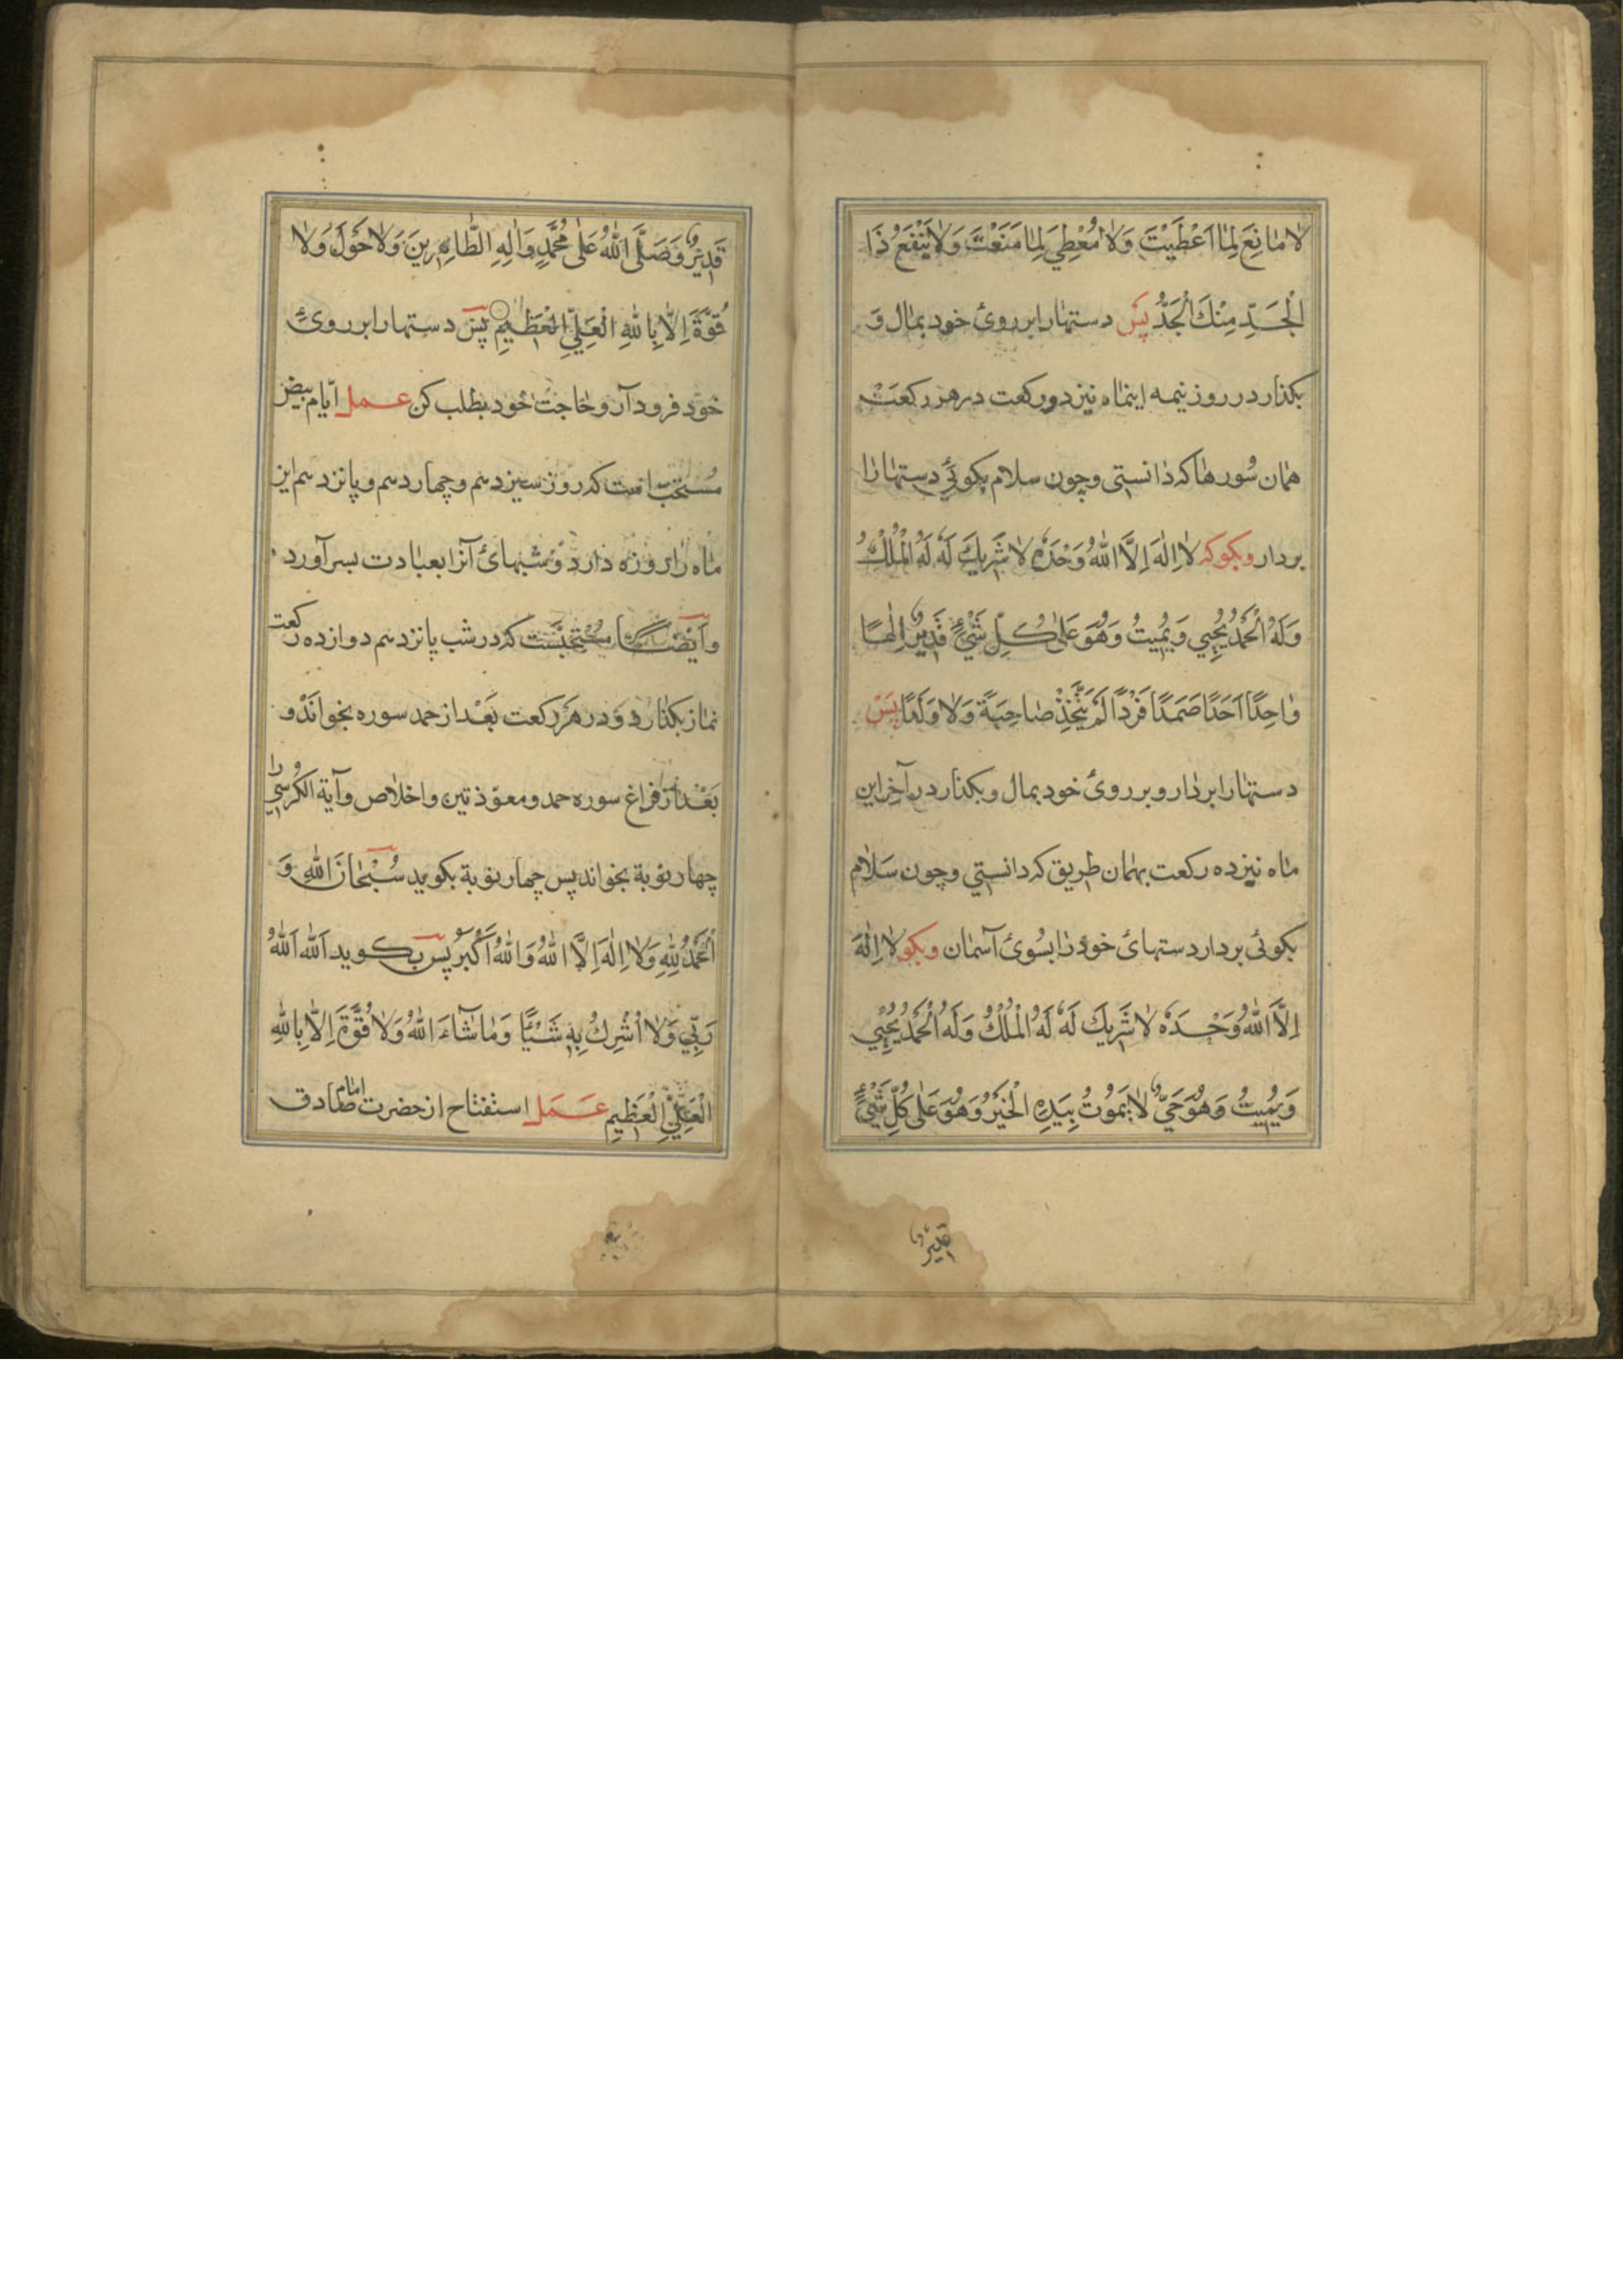 لا مانِعَ لِما اَعْطَيْتَ وَلا مُعْطِيَ لِما مَنَعْتَ وَلا يَنْفَعُ ذَا
الْجَدِّ مِنْكَ الْجَدُّ پس دستها را بر روی خود بمال و
بکذار در روز نیمه اینماه نیز دو رکعت در هر رکعت
همان سورها که دانستی و چون سلام بکوئی دستها را
بردار و بکو که لا اِلهَ اِلَّا اللهُ وَحْدَهُ لا شَرِيكَ لَهُ لَهُ الْمُلْكُ
وَلَهُ الْحَمْدُ يُحْيِي وَيُمِيتُ وَهُوَ عَلى كُلِّ شَيْءٍ قَدِيرٌ اِلهًا
واحِدًا اَحَدًا صَمَدًا فَرْدًا لَمْ يَتَّخِذْ صاحِبَةً وَلا وَلَدًا پس
دستها را بردار و بر روی خود بمال و بکذار در آخر این
ماه نیز ده رکعت بهمان طریق که دانستی و چون سلام
بکوئی بردار دستهای خود را بسوی آسمان و بکو لا اِلهَ
اِلَّا اللهُ وَحْدَهُ لا شَرِيكَ لَهُ لَهُ الْمُلْكُ وَلَهُ الْحَمْدُ يُحْيِي
وَيُمِيتُ وَهُوَ حَيٌّ لا يَمُوتُ بِيَدِهِ الْخَيْرُ وَهُوَ عَلى كُلِّ شَيْءٍ
قدیر
قَدِيرٌ وَصَلَّى اللهُ عَلى مُحَمَّدٍ وَالِهِ الطَّاهِرِينَ وَلا حَوْلَ وَلا
قُوَّةَ اِلَّا بِاللهِ الْعَلِيِّ الْعَظِيمِ پس دستها را بر روی
خود فرود آر و حاجت خود بطلب کن عمل ایّام بیض
مستحبّ است که روز سیزدهم و چهاردهم و پانزدهم این
ماه را روزه دارد و شبهای آنرا بعبادت بسر آورد
و ایضا مستحبّست که در شب پانزدهم دوازده رکعت
نماز بکذارد و در هر رکعت بعد از حمد سوره بخواند و
بعد از فراغ سوره حمد و معوّذتین و اخلاص و آیة الکرسی را
چهار نوبة بخواند پس چهار نوبة بکوید سُبْحانَ اللهِ وَ
اَلْحَمْدُ لِلّهِ وَلا اِلهَ اِلَّا اللهُ وَاللهُ اَكْبَرُ پس بکوید اَللهُ اَللهُ
رَبِّي وَلا اُشْرِكُ بِهِ شَيْئًا وَما شاءَ اللهُ وَلا قُوَّةَ اِلَّا بِاللهِ
الْعَلِيِّ الْعَظِيمِ عمل استفتاح از حضرت امام صادق